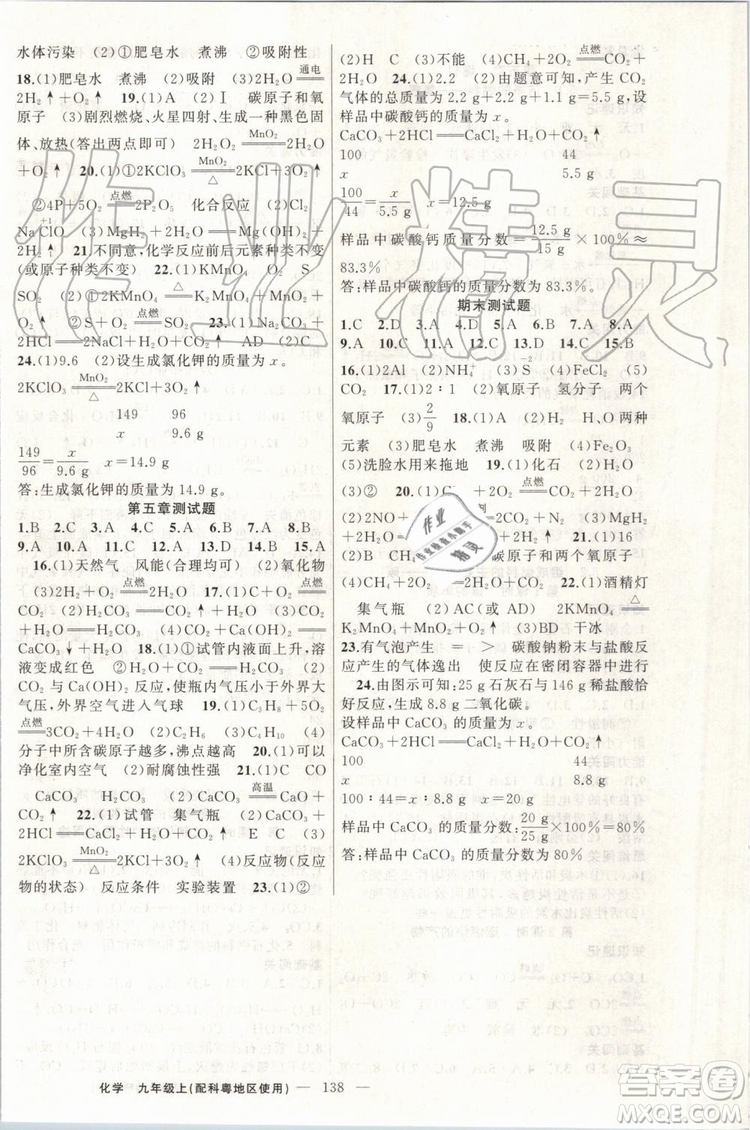 水体污染 (2)①肥皂水 煮沸 ②吸附性
18.(1)肥皂水 煮沸 (2)吸附 (3)2H₂O ══通电══
2H₂↑+O₂↑ 19.(1)A (2)Ⅰ 碳原子和氧
原子 (3)剧烈燃烧、火星四射、生成一种黑色固
体、放热(答出两点即可) 2H₂O₂ ══MnO₂══ 2H₂O
+O₂↑ 20.(1)①2KClO₃ ══MnO₂ △══ 2KCl+3O₂↑
②4P+5O₂ ══点燃══ 2P₂O₅ 化合反应 (2)Cl₂
NaClO (3)MgH₂+2H₂O══Mg(OH)₂+
2H₂↑ 21.不同意,化学反应前后元素种类不变
(或原子种类不变) 22.(1)KMnO₄ O₂ S
SO₂ (2)①2KMnO₄ ══△══ K₂MnO₄+MnO₂+
O₂↑ ②S+O₂ ══点燃══ SO₂ 23.(1)Na₂CO₃+
2HCl══2NaCl+H₂O+CO₂↑ AD (2)C
24.(1)9.6 (2)设生成氯化钾的质量为 x。
2KClO₃ ══MnO₂ △══ 2KCl+3O₂↑
149 96
x 9.6 g
149/96=x/9.6 g x=14.9 g
答:生成氯化钾的质量为 14.9 g。
第五章测试题
1.B 2.C 3.A 4.C 5.A 6.D 7.C 8.B
9.A 10.A 11.D 12.A 13.D 14.C 15.B
16.(1)天然气 风能(合理均可) (2)氧化物
(3)2H₂+O₂ ══点燃══ 2H₂O 17.(1)C+O₂ ══点燃══
CO₂ (2)2CO+O₂ ══点燃══ 2CO₂ (3)CO₂+H₂O
══H₂CO₃ (4)CO₂+Ca(OH)₂══
CaCO₃↓+H₂O 18.(1)①试管内液面上升,溶
液变成红色 ②CO₂+Ca(OH)₂══CaCO₃↓+H₂O
CO₂ 与 Ca(OH)₂ 反应,使瓶内气压小于外界大
气压,外界空气进入气球 (2)①C₃H₈+5O₂
══点燃══ 3CO₂+4H₂O (2)C₂H₆ (3)C₅H₁₂ (4)
分子中所含碳原子越多,沸点越高 20.(1)可以
净化室内空气 (2)耐腐蚀性强 21.(1)C CO
CaCO₃ H₂CO₃ (2)CaCO₃ ══高温══ CaO+
CO₂↑ 22.(1)试管 集气瓶 (2)CaCO₃+
2HCl══CaCl₂+H₂O+CO₂↑ E C (3)
2KClO₃ ══MnO₂ △══ 2KCl+3O₂↑ (4)反应物(反应
物的状态) 反应条件 实验装置 23.(1)①②
(2)H C (3)不能 (4)CH₄+2O₂ ══点燃══ CO₂+
2H₂O 24.(1)2.2 (2)由题意可知,产生 CO₂
气体的总质量为 2.2 g+2.2 g+1.1 g=5.5 g,
设样品中碳酸钙的质量为 x。
CaCO₃+2HCl══CaCl₂+H₂O+CO₂↑
100 44
x 5.5 g
100/44=x/5.5 g x=12.5 g
样品中碳酸钙质量分数=12.5 g/15 g×100%≈
83.3%
答:样品中碳酸钙的质量分数为 83.3%。
期末测试题
1.C 2.D 3.A 4.D 5.B 6.A 7.A 8.A
9.A 10.A 11.A 12.C 13.C 14.C 15.B
16.(1)2Al (2)NH₄⁺ (3)S (4)FeCl₂ (5)
CO₂ 17.(1)2∶1 (2)氧原子 氢分子 两个
氧原子 (3)2/9 18.(1)A (2)H₂ H、O两种
元素 (3)肥皂水 煮沸 吸附 (4)Fe₂O₃
(5)洗脸水用来拖地 19.(1)化石 (2)C
(3)② 20.(1)CH₄+2O₂ ══点燃══
(2)2NO+ (3)MgH₂
+2H₂O══
(2)B CaCO₃+2HCl
(4)CH₄+2O₂ ══点燃══ CO₂+2H₂O 22.(1)酒精灯
集气瓶 (2)AC(或 AD) 2KMnO₄ ══△══
K₂MnO₄+MnO₂+O₂↑ (3)BD 干冰
23.有气泡产生 = > 碳酸钠粉末与盐酸反
应产生的气体逸出 使反应在密闭容器中进行
24.由图示可知:25 g 石灰石与 146 g 稀盐酸恰
好反应,生成 8.8 g 二氧化碳。
设样品中 CaCO₃ 的质量为 x。
CaCO₃+2HCl══CaCl₂+H₂O+CO₂↑
100 44
x 8.8 g
100∶44=x∶8.8 g x=20 g
样品中 CaCO₃ 的质量分数:20 g/25 g×100%=80%
答:样品中 CaCO₃ 的质量分数为 80%
化学 九年级上(配科粤地区使用) — 138 —
作业精灵
答案圈
MXQE.COM